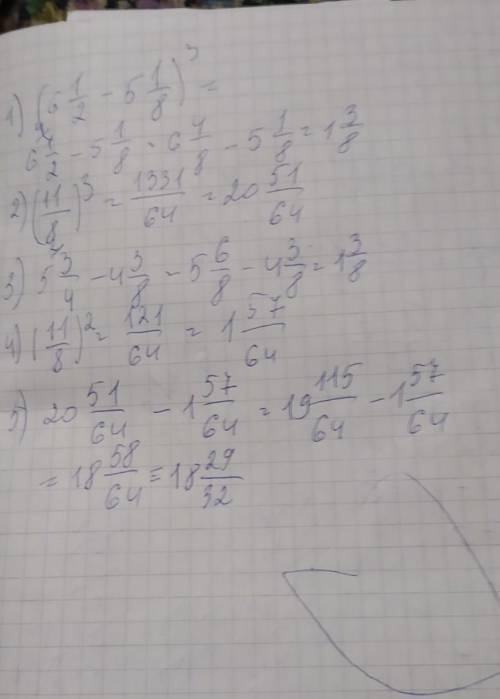 1) (6 1/2 - 5 1/8)^3 =
6 1/2 - 5 1/8 = 6 4/8 - 5 1/8 = 1 3/8
2) (11/8)^3 = 1331/64 = 20 51/64
3) 5 3/4 - 4 3/8 = 5 6/8 - 4 3/8 = 1 3/8
4) (11/8)^2 = 121/64 = 1 57/64
5) 20 51/64 - 1 57/64 = 19 115/64 - 1 57/64
= 18 58/64 = 18 29/32